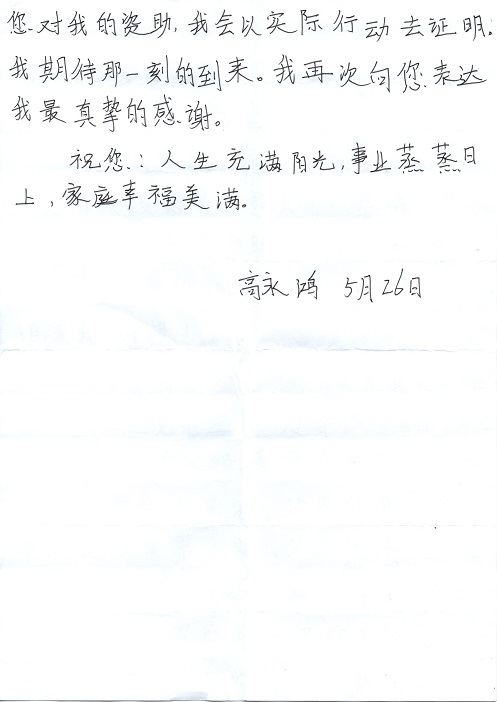 您对我的资助,我会以实际行动去证明.
我期待那一刻的到来。我再次向您表达
我最真挚的感谢。
祝您:人生充满阳光,事业蒸蒸日
上,家庭幸福美满。
高永鸿 5月26日